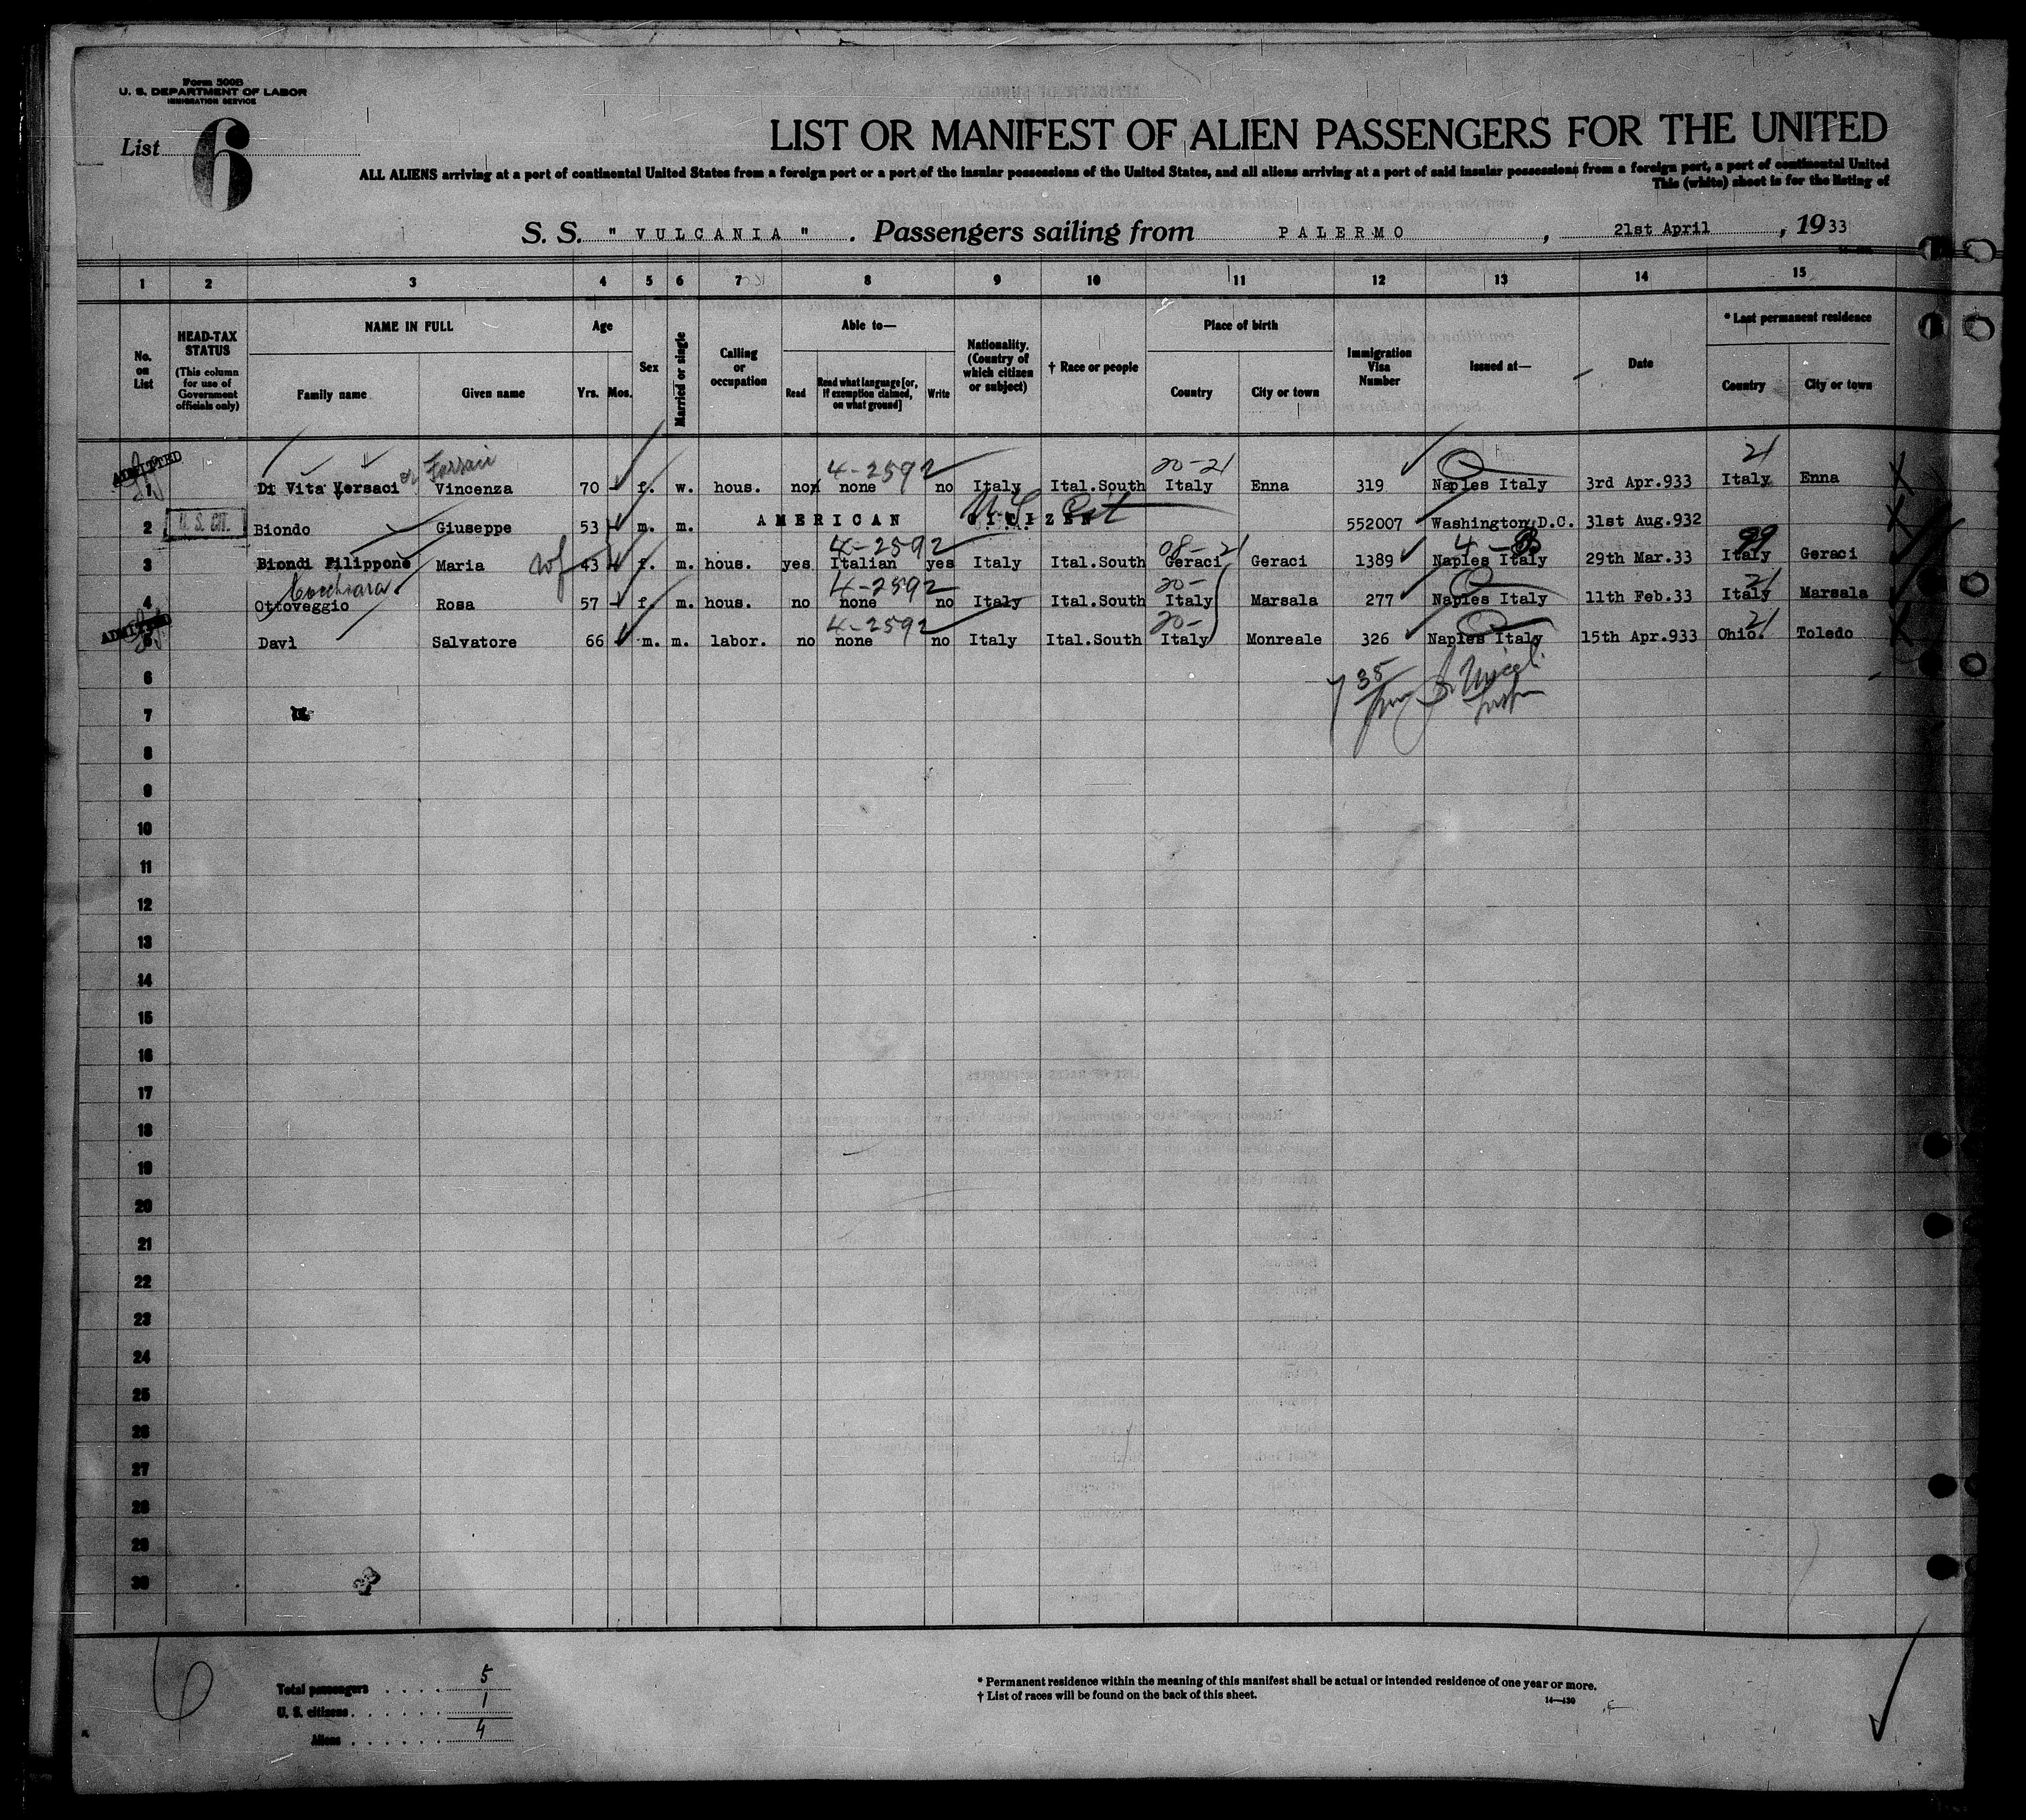 Form 500B
U. S. DEPARTMENT OF LABOR
IMMIGRATION SERVICE
List 6
LIST OR MANIFEST OF ALIEN PASSENGERS FOR THE UNITED
ALL ALIENS arriving at a port of continental United States from a foreign port or a port of the insular possessions of the United States, and all aliens arriving at a port of said insular possessions from a foreign port, a port of continental United
This (white) sheet is for the listing of
S. S. " VULCANIA ". Passengers sailing from PALERMO, 21st April, 1933
1 2 3 4 5 6 7 8 9 10 11 12 13 14 15
No. on List
HEAD-TAX STATUS (This column for use of Government officials only)
NAME IN FULL
Family name
Given name
Age
Yrs. Mos.
Sex
Married or single
Calling or occupation
Able to—
Read
Read what language [or, if exemption claimed, on what ground]
Write
Nationality. (Country of which citizen or subject)
† Race or people
Place of birth
Country
City or town
Immigration Visa Number
Issued at—
Date
* Last permanent residence
Country
City or town
4-2592 20-21 21
ADMITTED
1 Di Vita Versaci or Vincenza 70 - f. w. hous. no none no Italy Ital.South Italy Enna 319 Naples Italy 3rd Apr.933 Italy Enna
US Cit
2 U. S. CIT. Biondo Giuseppe 53 m. m. AMERICAN CITIZEN 552007 Washington D.C. 31st Aug.932
4-2592 08-21 4- 99
3 Biondi Filippone Maria wf 43 f. m. hous. yes Italian yes Italy Ital.South Geraci Geraci 1389 Naples Italy 29th Mar.33 Italy Geraci
Cocchiara 4-2592 20- 21
4 Ottoveggio Rosa 57 - f. m. hous. no none no Italy Ital.South Italy Marsala 277 Naples Italy 11th Feb.33 Italy Marsala
4-2592 20- 21
ADMITTED
5 Davì Salvatore 66 m. m. labor. no none no Italy Ital.South Italy Monreale 326 Naples Italy 15th Apr.933 Ohio. Toledo
6
35
7
8
9
10
11
12
13
14
15
16
17
18
19
20
21
22
23
24
25
26
27
28
29
30
6
Total passengers 5
U. S. citizens 1
Aliens 4
* Permanent residence within the meaning of this manifest shall be actual or intended residence of one year or more.
† List of races will be found on the back of this sheet.
14—430